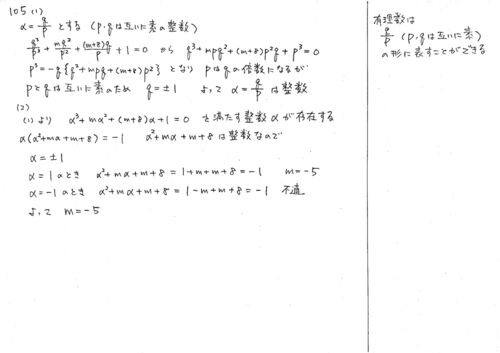 105 (1)
α = q/p とする (p, qは互いに素の整数)
q³/p³ + mq²/p² + (m+8)q/p + 1 = 0 から q³ + mpq² + (m+8)p²q + p³ = 0
p³ = −q{q² + mpq + (m+8)p²} となり pはqの倍数になるが
pとqは互いに素のため q = ±1 よって α = q/p は整数
(2)
(1)より α³ + mα² + (m+8)α + 1 = 0 を満たす整数αが存在する
α(α² + mα + m + 8) = −1 α² + mα + m + 8 は整数なので
α = ±1
α = 1 のとき α² + mα + m + 8 = 1 + m + m + 8 = −1 m = −5
α = −1 のとき α² + mα + m + 8 = 1 − m + m + 8 = −1 不適
よって m = −5
有理数は
q/p (p, qは互いに素)
の形に表すことができる